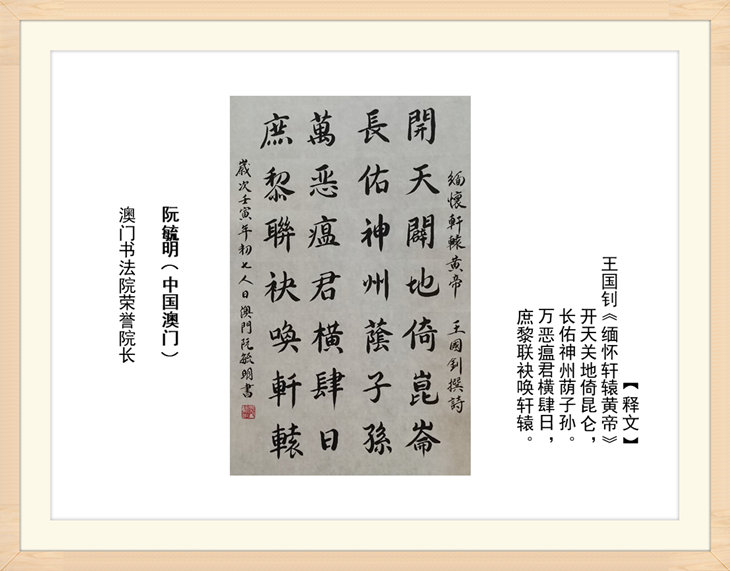 【释文】
王国钊《缅怀轩辕黄帝》
开天关地倚昆仑，
长佑神州荫子孙。
万恶瘟君横肆日，
庶黎联袂唤轩辕。
緬懷軒轅黃帝 王國釗撰詩
開天闢地倚崑崙
長佑神州蔭子孫
萬恶瘟君橫肆日
庶黎聯袂喚軒轅
歲次壬寅年初七人日澳門阮毓明書
阮毓明（中国澳门）
澳门书法院荣誉院长